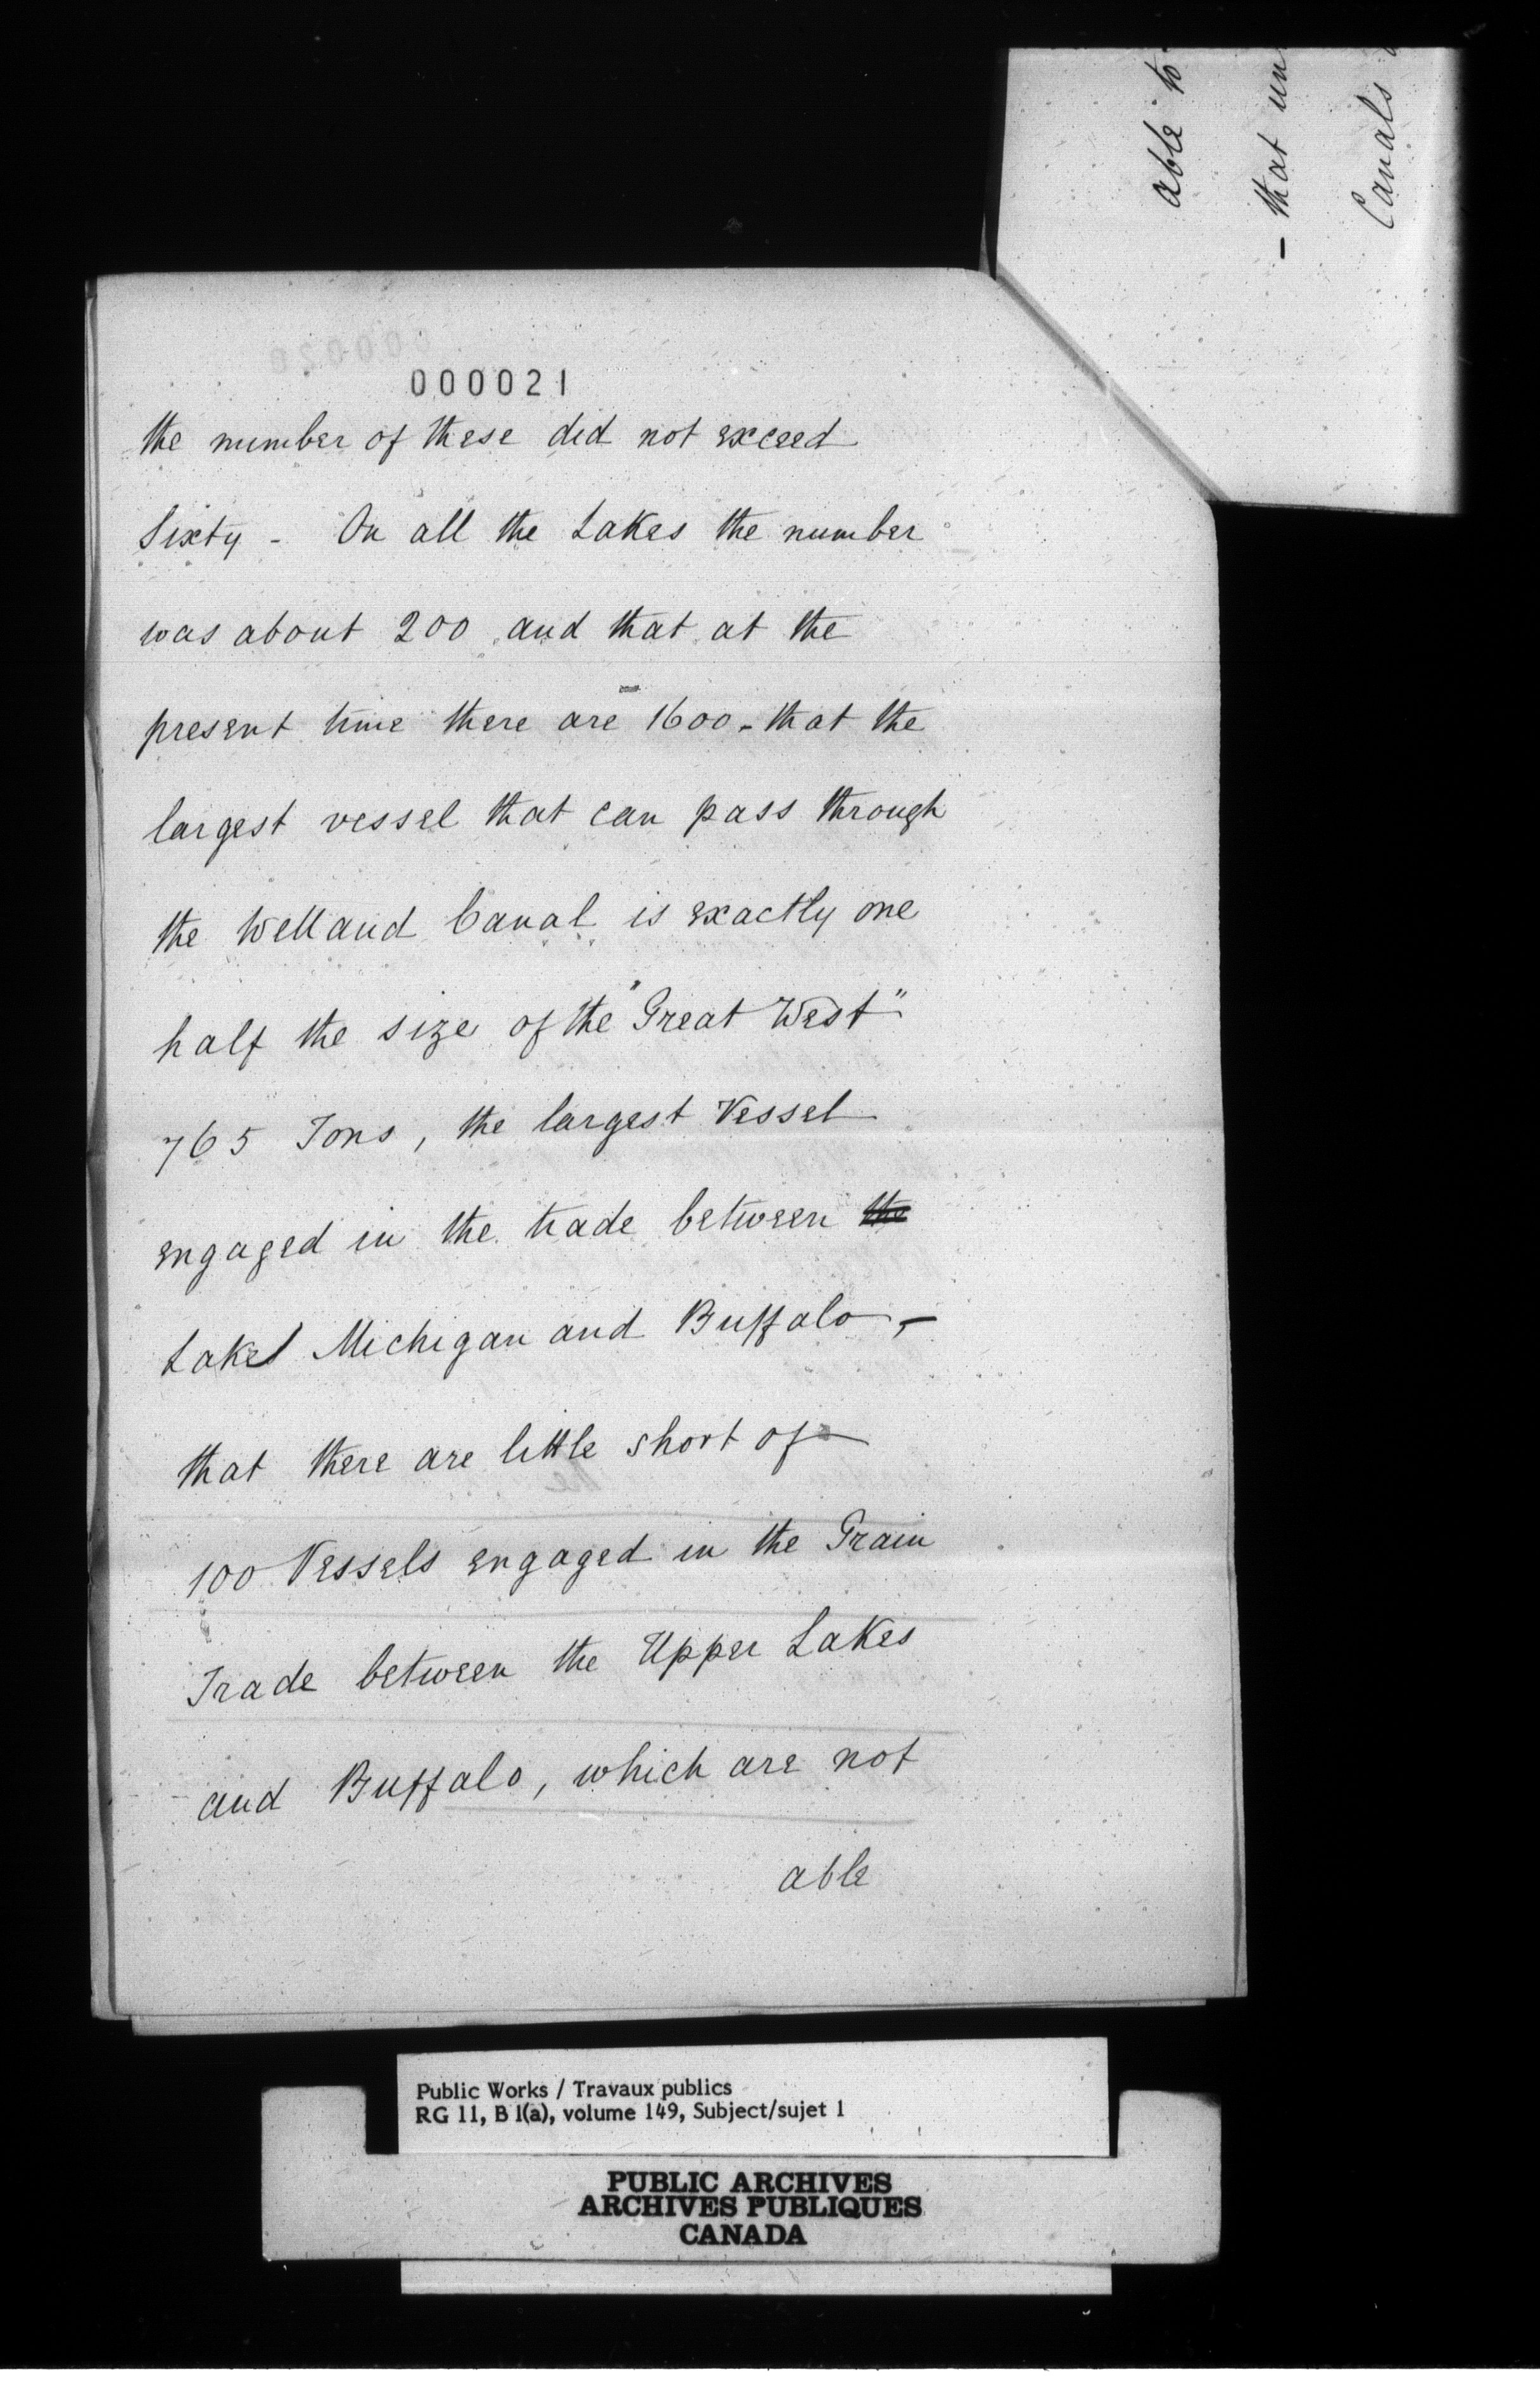 able to
- that un
Canals
000021
the number of these did not exceed
Sixty - On all the Lakes the number
was about 200 and that at the
present time there are 1600 - that the
largest vessel that can pass through
the Welland Canal is exactly one
half the size of the "Great West"
765 Tons, the largest Vessel
engaged in the trade between the
Lake Michigan and Buffalo, -
that there are little short of
100 Vessels engaged in the Grain
Trade between the Upper Lakes
and Buffalo, which are not
able
Public Works / Travaux publics
RG 11, B 1(a), volume 149, Subject/sujet 1
PUBLIC ARCHIVES
ARCHIVES PUBLIQUES
CANADA